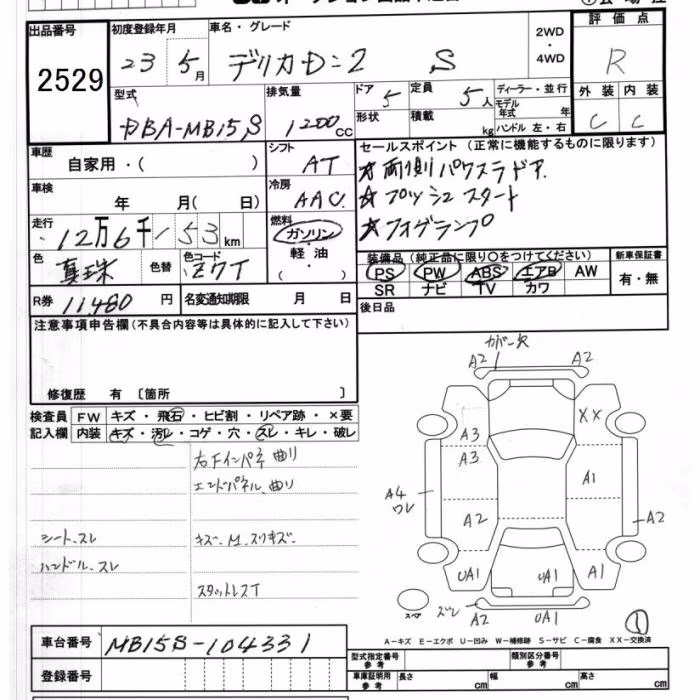 出品番号
2529
初度登録年月
23 5月
車名・グレード
デリカD:2 S
2WD・4WD
評価点
R
型式
DBA-MB15S
排気量
1200cc
ドア 5
形状
定員 5人
積載 kg
ディーラー・並行
モデル年式 年
ハンドル 左・右
外装 内装
C C
車歴
自家用・( )
シフト AT
セールスポイント(正常に機能するものに限ります)
☆両側パワスラドア
☆プッシュスタート
☆フォグランプ
車検
年 月( 日)
冷房 AAC
走行
12万6千153km
燃料
ガソリン
軽油
( )
色 真珠
色替
色コード Z7T
装備品(純正品に限り○をつけてください)
PS PW ABS エアB AW
SR ナビ TV カワ
新車保証書
有・無
R券 11,480円
名変通知期限 月 日
後日品
注意事項申告欄(不具合内容等は具体的に記入して下さい)
修復歴 有 〔箇所 〕
検査員記入欄
FW キズ・飛石・ヒビ割・リペア跡・×要
内装 キズ・汚レ・コゲ・穴・スレ・キレ・破レ
右Fインパネ曲り
エンドパネル曲り
シート、スレ
キズ、M、スリキズ
ハンドル、スレ
スタットレスT
カバー欠
A2 A2
XX
A3
A3
A1
A4
ワレ
A2
A2
UA1 UA1 A1
スペア
ズレ
A2 UA1
①
A-キズ E-エクボ U-凹み W-補修跡 S-サビ C-腐食 XX-交換済
車台番号 MB15S-104331
登録番号
型式指定番号 参考
類別区分番号 参考
車庫証明用 参考
長さ cm
幅 cm
高さ cm